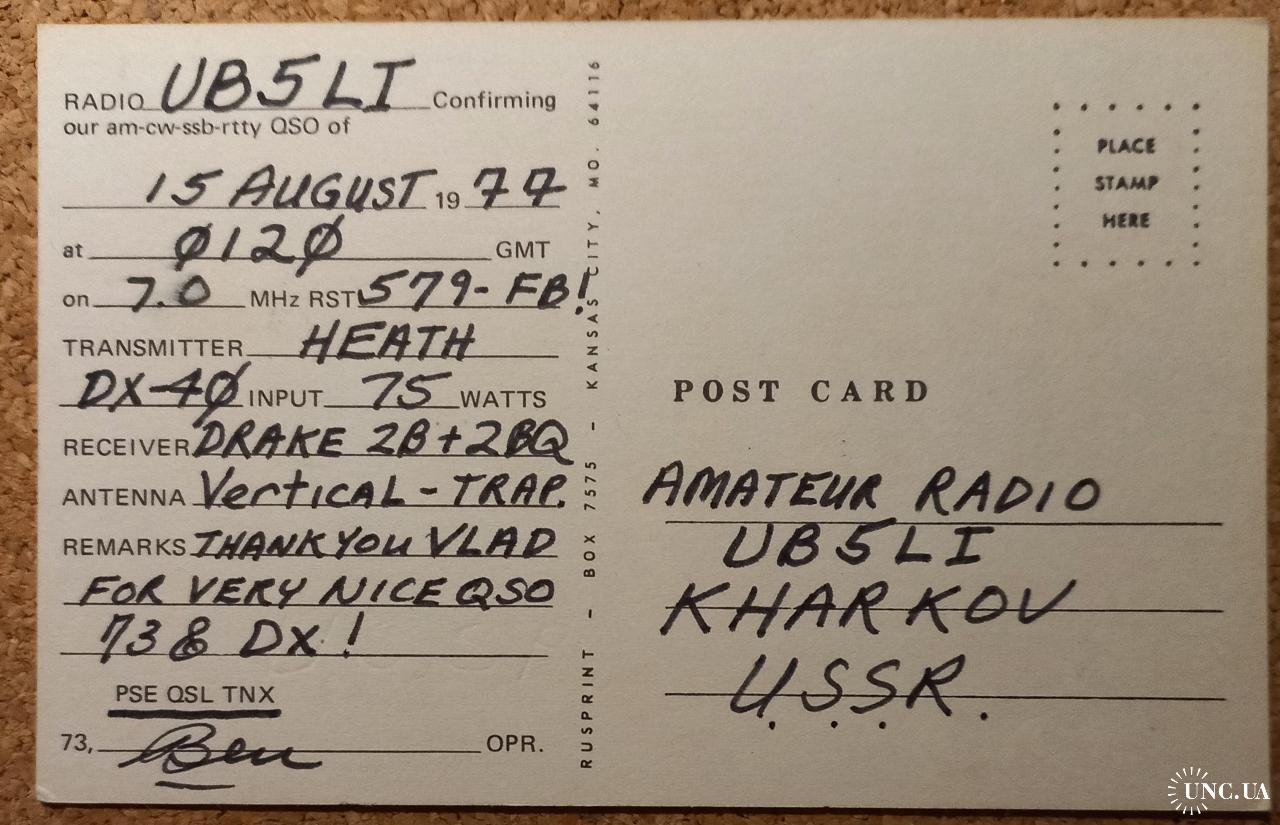 RADIO UB5LI Confirming
our am-cw-ssb-rtty QSO of
15 AUGUST 1977
at Ø12Ø GMT
on 7.0 MHz RST 579-FB!
TRANSMITTER HEATH
DX-4Ø INPUT 75 WATTS
RECEIVER DRAKE 2B+2BQ
ANTENNA VerTICAL-TRAP.
REMARKS THANK YOU VLAD
FOR VERY NICE QSO
73 & DX!
PSE QSL TNX
73, Ben OPR.
RUSPRINT – BOX 7575 – KANSAS CITY, MO. 64116
PLACE
STAMP
HERE
POST CARD
AMATEUR RADIO
UB5LI
KHARKOV
U.S.S.R.
UNC.UA